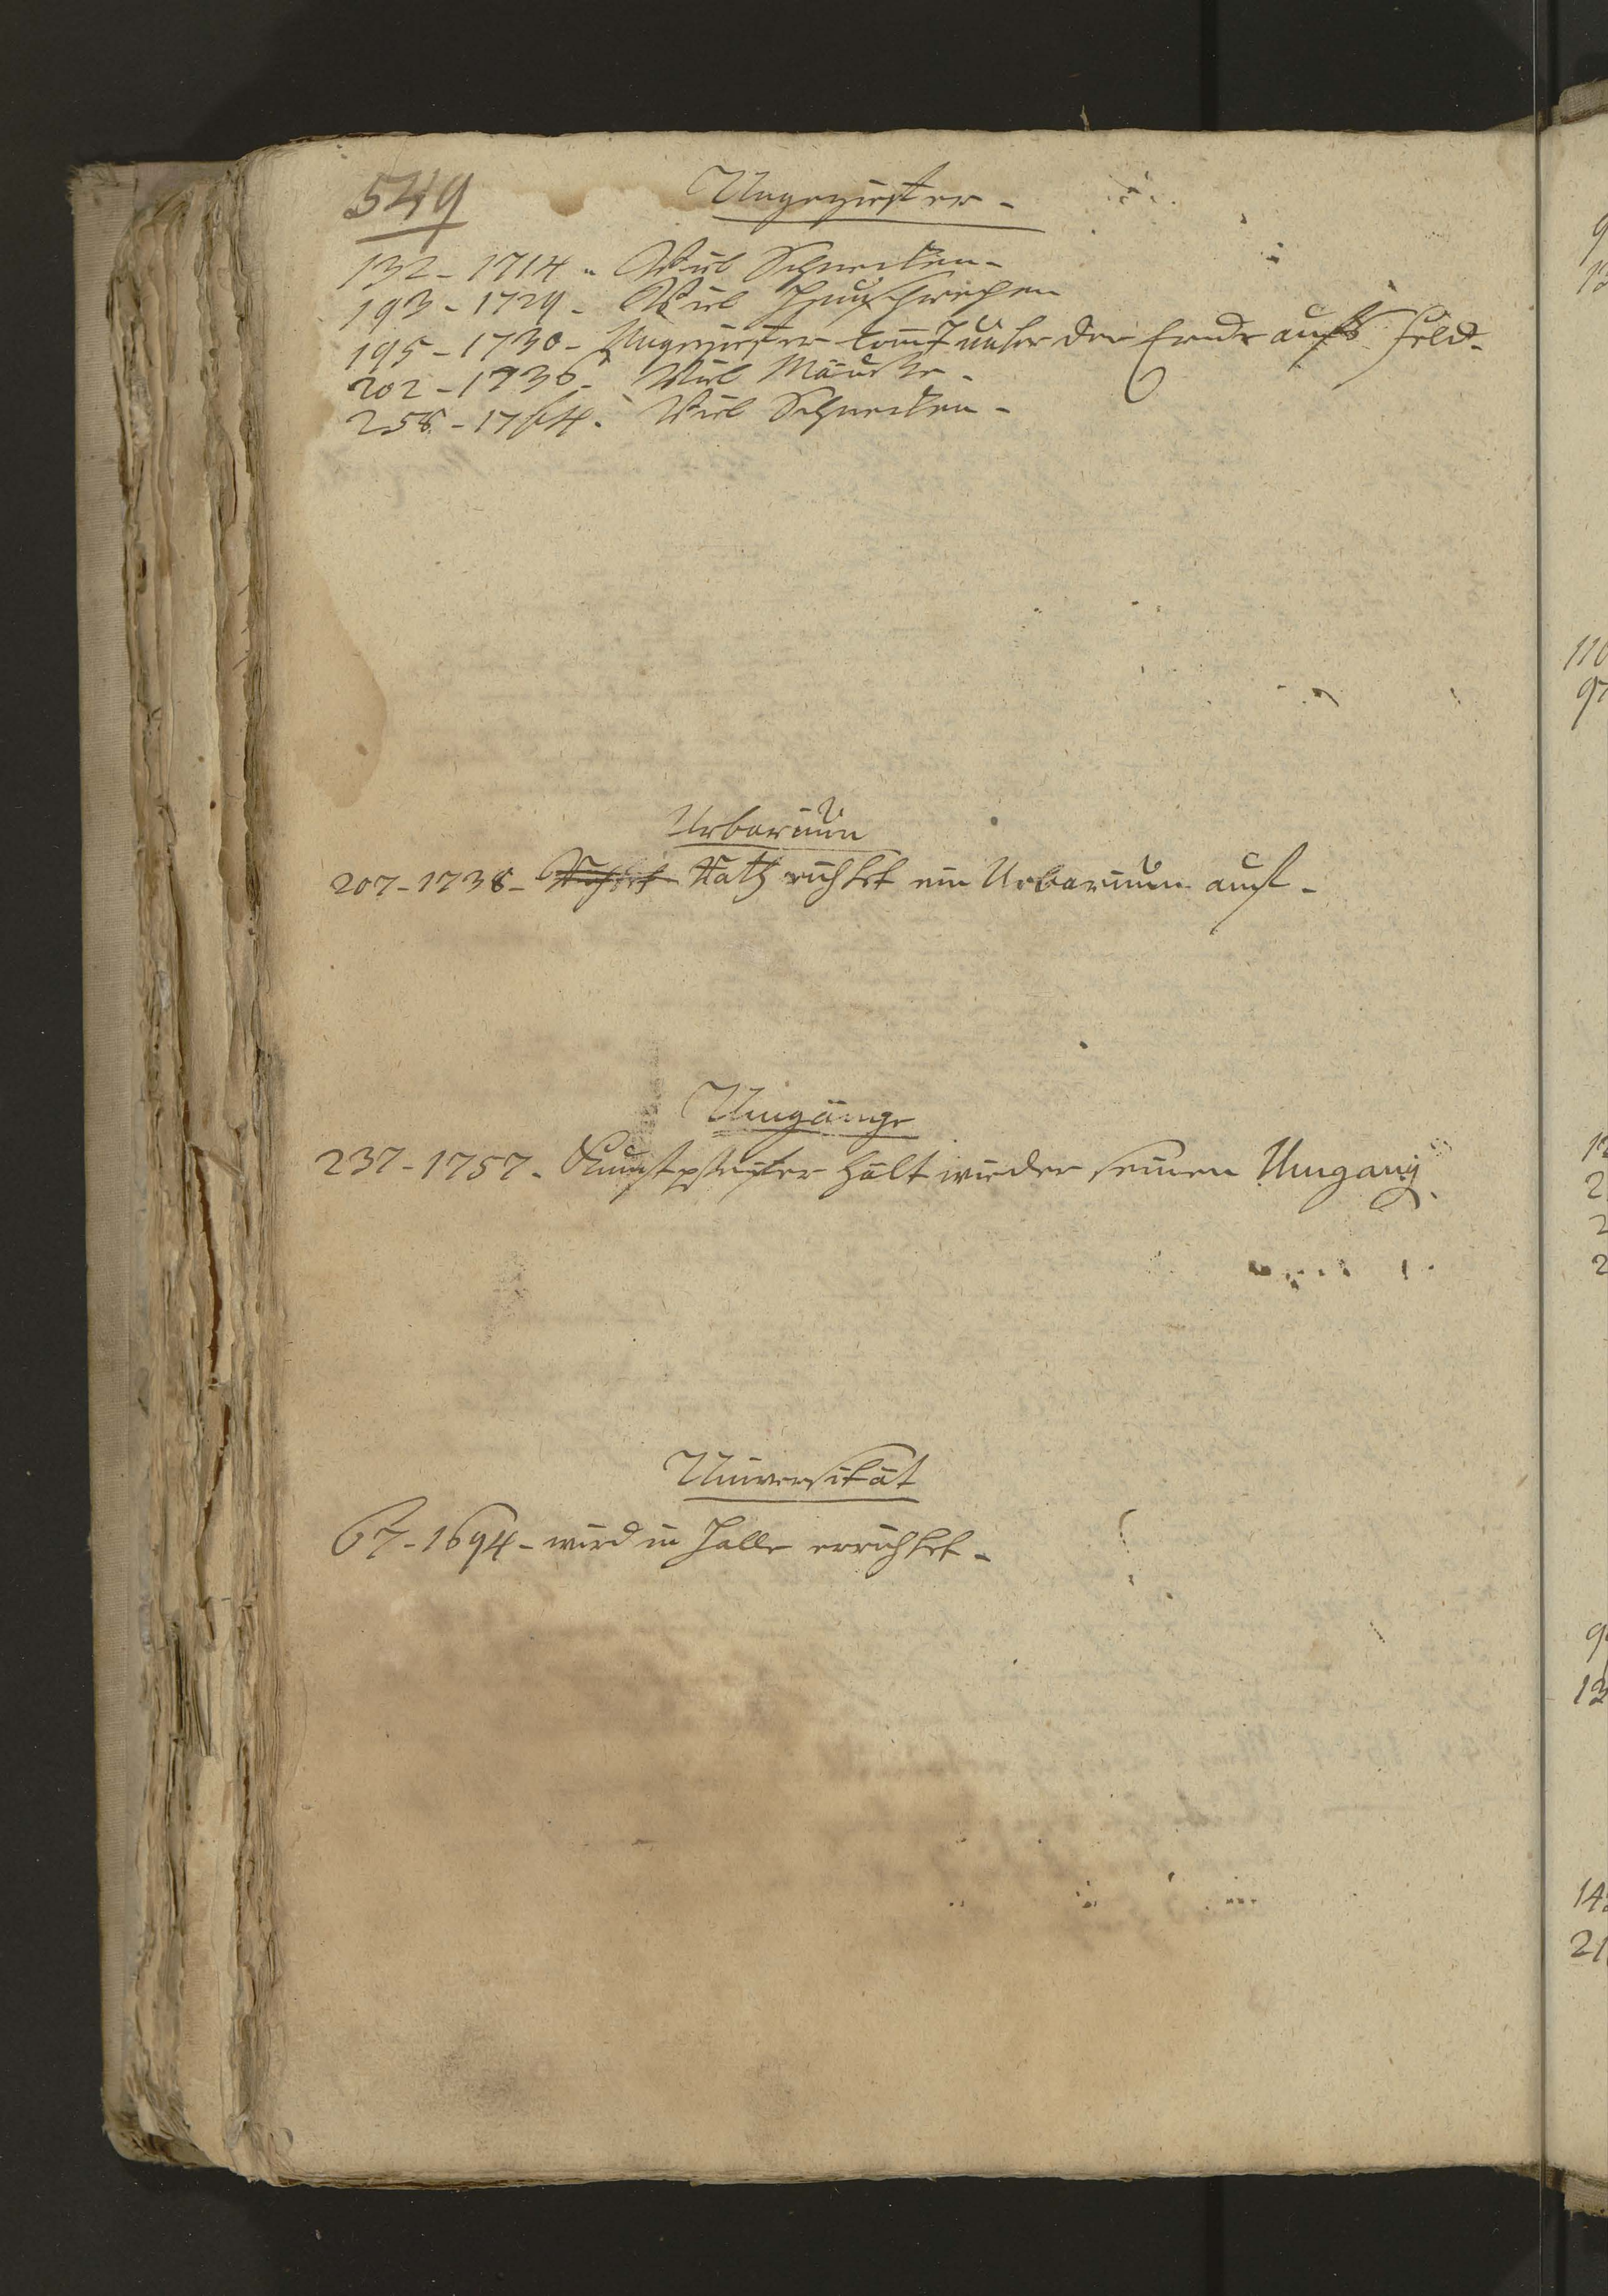 549
Ungeziefer -
132 - 1714 - Viel Schnecken -
193 - 1729 - Viel Heuschrecken
195 - 1730 - Ungeziefer komt der Ernde aufs Feld -
202 - 1736 - Viel Mäuse -
258 - 1764 - Viel Schnecken -
Urbarium
207 - 1738 - Rath richtet ein Urbarium auf -
Umgänge
237 - 1757 - Kunstpfeifer hält wieder seinen Umgang.
Universität
67 - 1694 - wird in Halle errichtet -